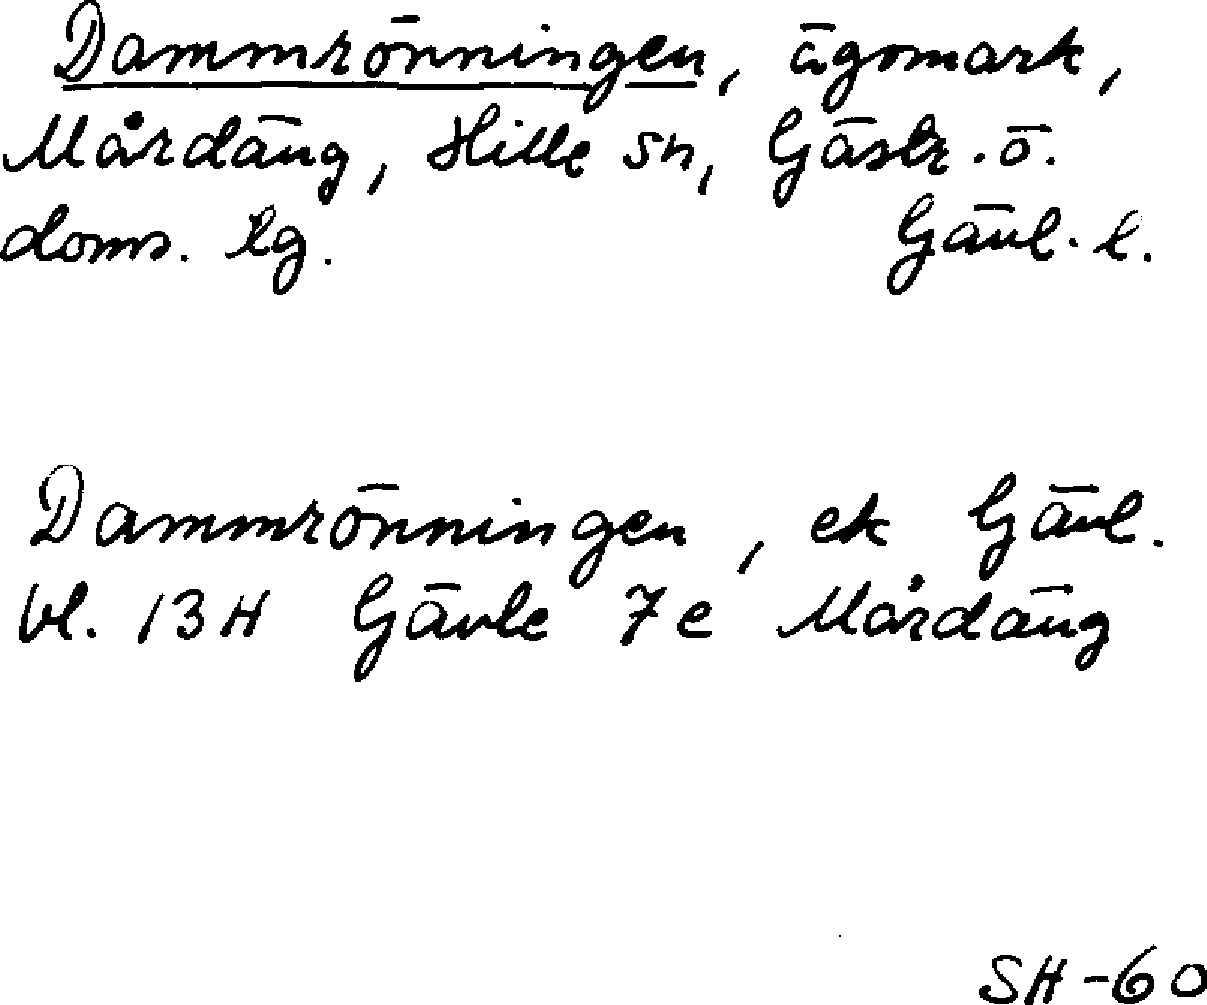 Dammrönningen, ägomark,
Mårdäng, Hille sn, Gästr. ö.
doms. lg. Gävl. l.
Dammrönningen, ek Gävl.
bl. 13H Gävle 7e Mårdäng
SH-60